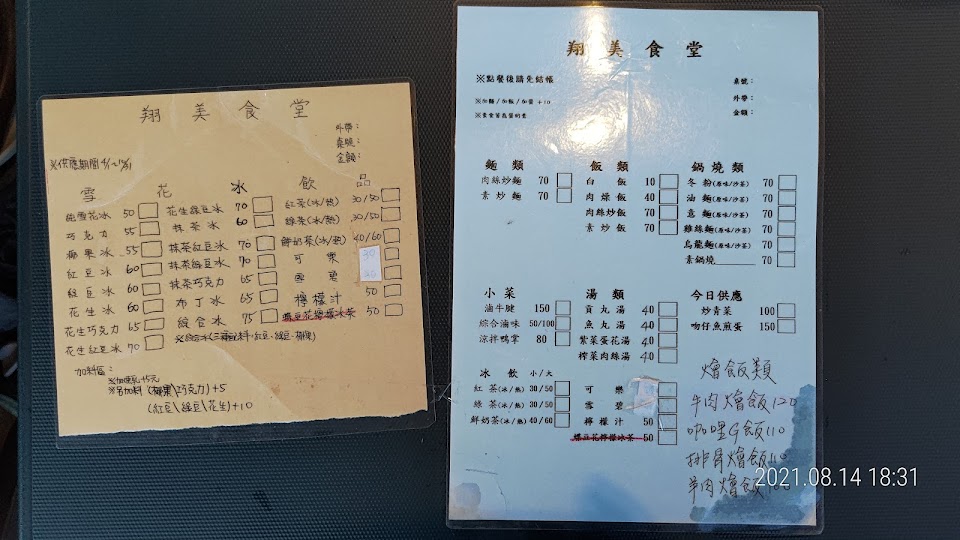 翔美食堂
外帶：
桌號：
金額：
雪花冰
飲品
純雪花冰 50
巧克力 55
椰果冰 55
紅豆冰 60
綠豆冰 60
花生冰 60
花生巧克力 65
花生紅豆冰 70
花生綠豆冰 70
抹茶冰 60
抹茶紅豆冰 70
抹茶綠豆冰 70
抹茶巧克力 65
布丁冰 65
綜合冰 75
紅茶(冰/熱) 30/50
綠茶(冰/熱) 30/50
鮮奶茶(冰/熱) 40/60
可樂 30
雪碧
檸檬汁 50
蝶豆花檸檬冰茶 50
加料區：
※加煉乳+5元
※另加料(椰果\巧克力)+5
(紅豆\綠豆\花生)+10
翔美食堂
※點餐後請先結帳
桌號：
外帶：
金額：
※加麵/加飯/加醬 +10
麵類
肉絲炒麵 70
素炒麵 70
飯類
白飯 10
肉燥飯 40
肉絲炒飯 70
素炒飯 70
鍋燒類
冬粉(原味/沙茶) 70
油麵(原味/沙茶) 70
意麵(原味/沙茶) 70
雞絲麵(原味/沙茶) 70
烏龍麵(原味/沙茶) 70
素鍋燒 70
小菜
滷牛腱 150
綜合滷味 50/100
涼拌鴨掌 80
湯類
貢丸湯 40
魚丸湯 40
紫菜蛋花湯 40
榨菜肉絲湯 40
今日供應
炒青菜 100
吻仔魚煎蛋 150
冰飲 小/大
紅茶(冰/熱) 30/50
綠茶(冰/熱) 30/50
鮮奶茶(冰/熱) 40/60
可樂
雪碧
檸檬汁 50
蝶豆花檸檬冰茶 50
燴飯類
牛肉燴飯120
咖哩G飯110
排骨燴飯110
羊肉燴飯
2021.08.14 18:31